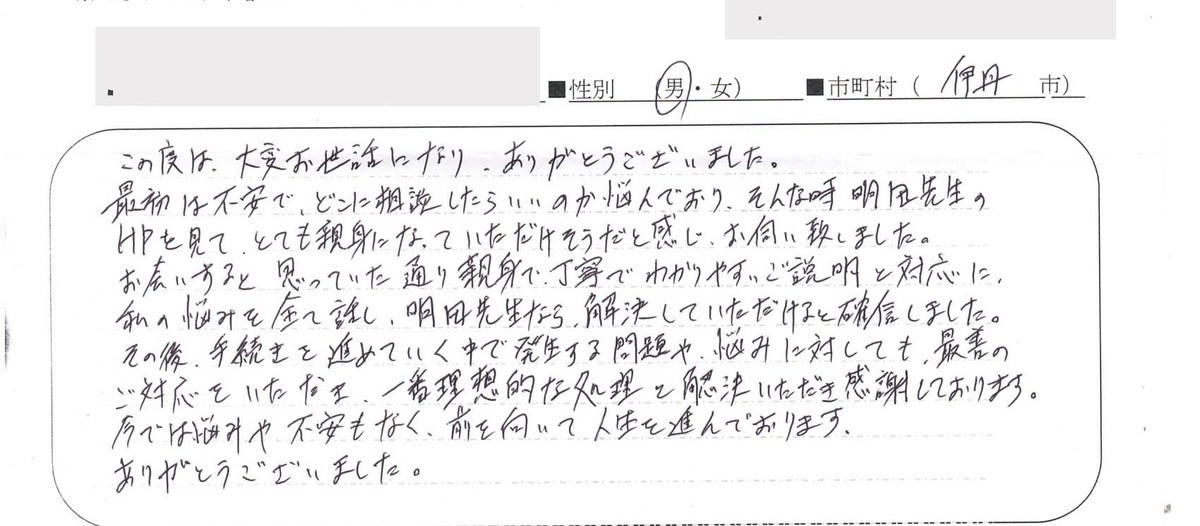 ■性別 (男・女) ■市町村( 伊丹 市)
この度は、大変お世話になり、ありがとうございました。
最初は不安で、どこに相談したらいいのか悩んでおり、そんな時 明田先生の
HPを見て、とても親身になっていただけそうだと感じ、お伺い致しました。
お会いすると思っていた通り親身で、丁寧でわかりやすいご説明と対応に、
私の悩みを全て話し、明田先生なら、解決していただけると確信しました。
その後、手続きを進めていく中で発生する問題や、悩みに対しても、最善の
ご対応をいただき、一番理想的な処理と解決いただき感謝しております。
今では悩みや不安もなく、前を向いて人生を進んでおります、
ありがとうございました。